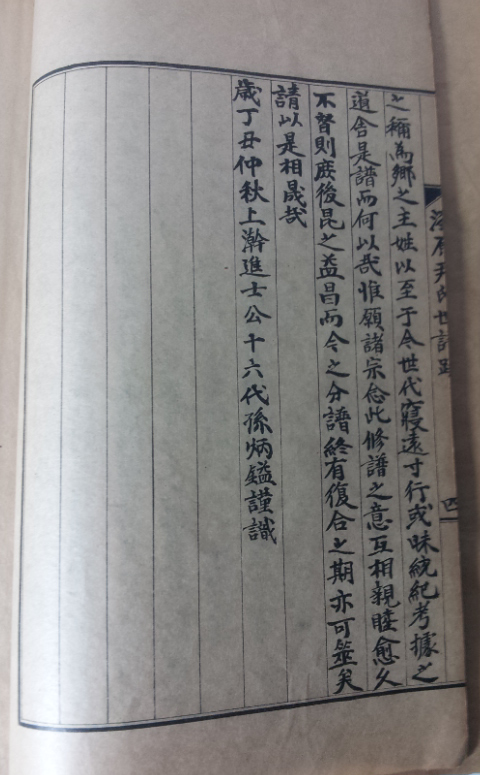 海原尹氏世譜跋
四
之稱為鄉之主姓以至于今世代寢遠寸行或昧統紀考據之
道舍是譜而何以哉惟願諸宗念此修譜之意互相親睦愈久
不替則庶後昆之益昌而今之分譜終有復合之期亦可筮矣
請以是相晟哉
歲丁丑仲秋上澣進士公十六代孫炳鎰謹識